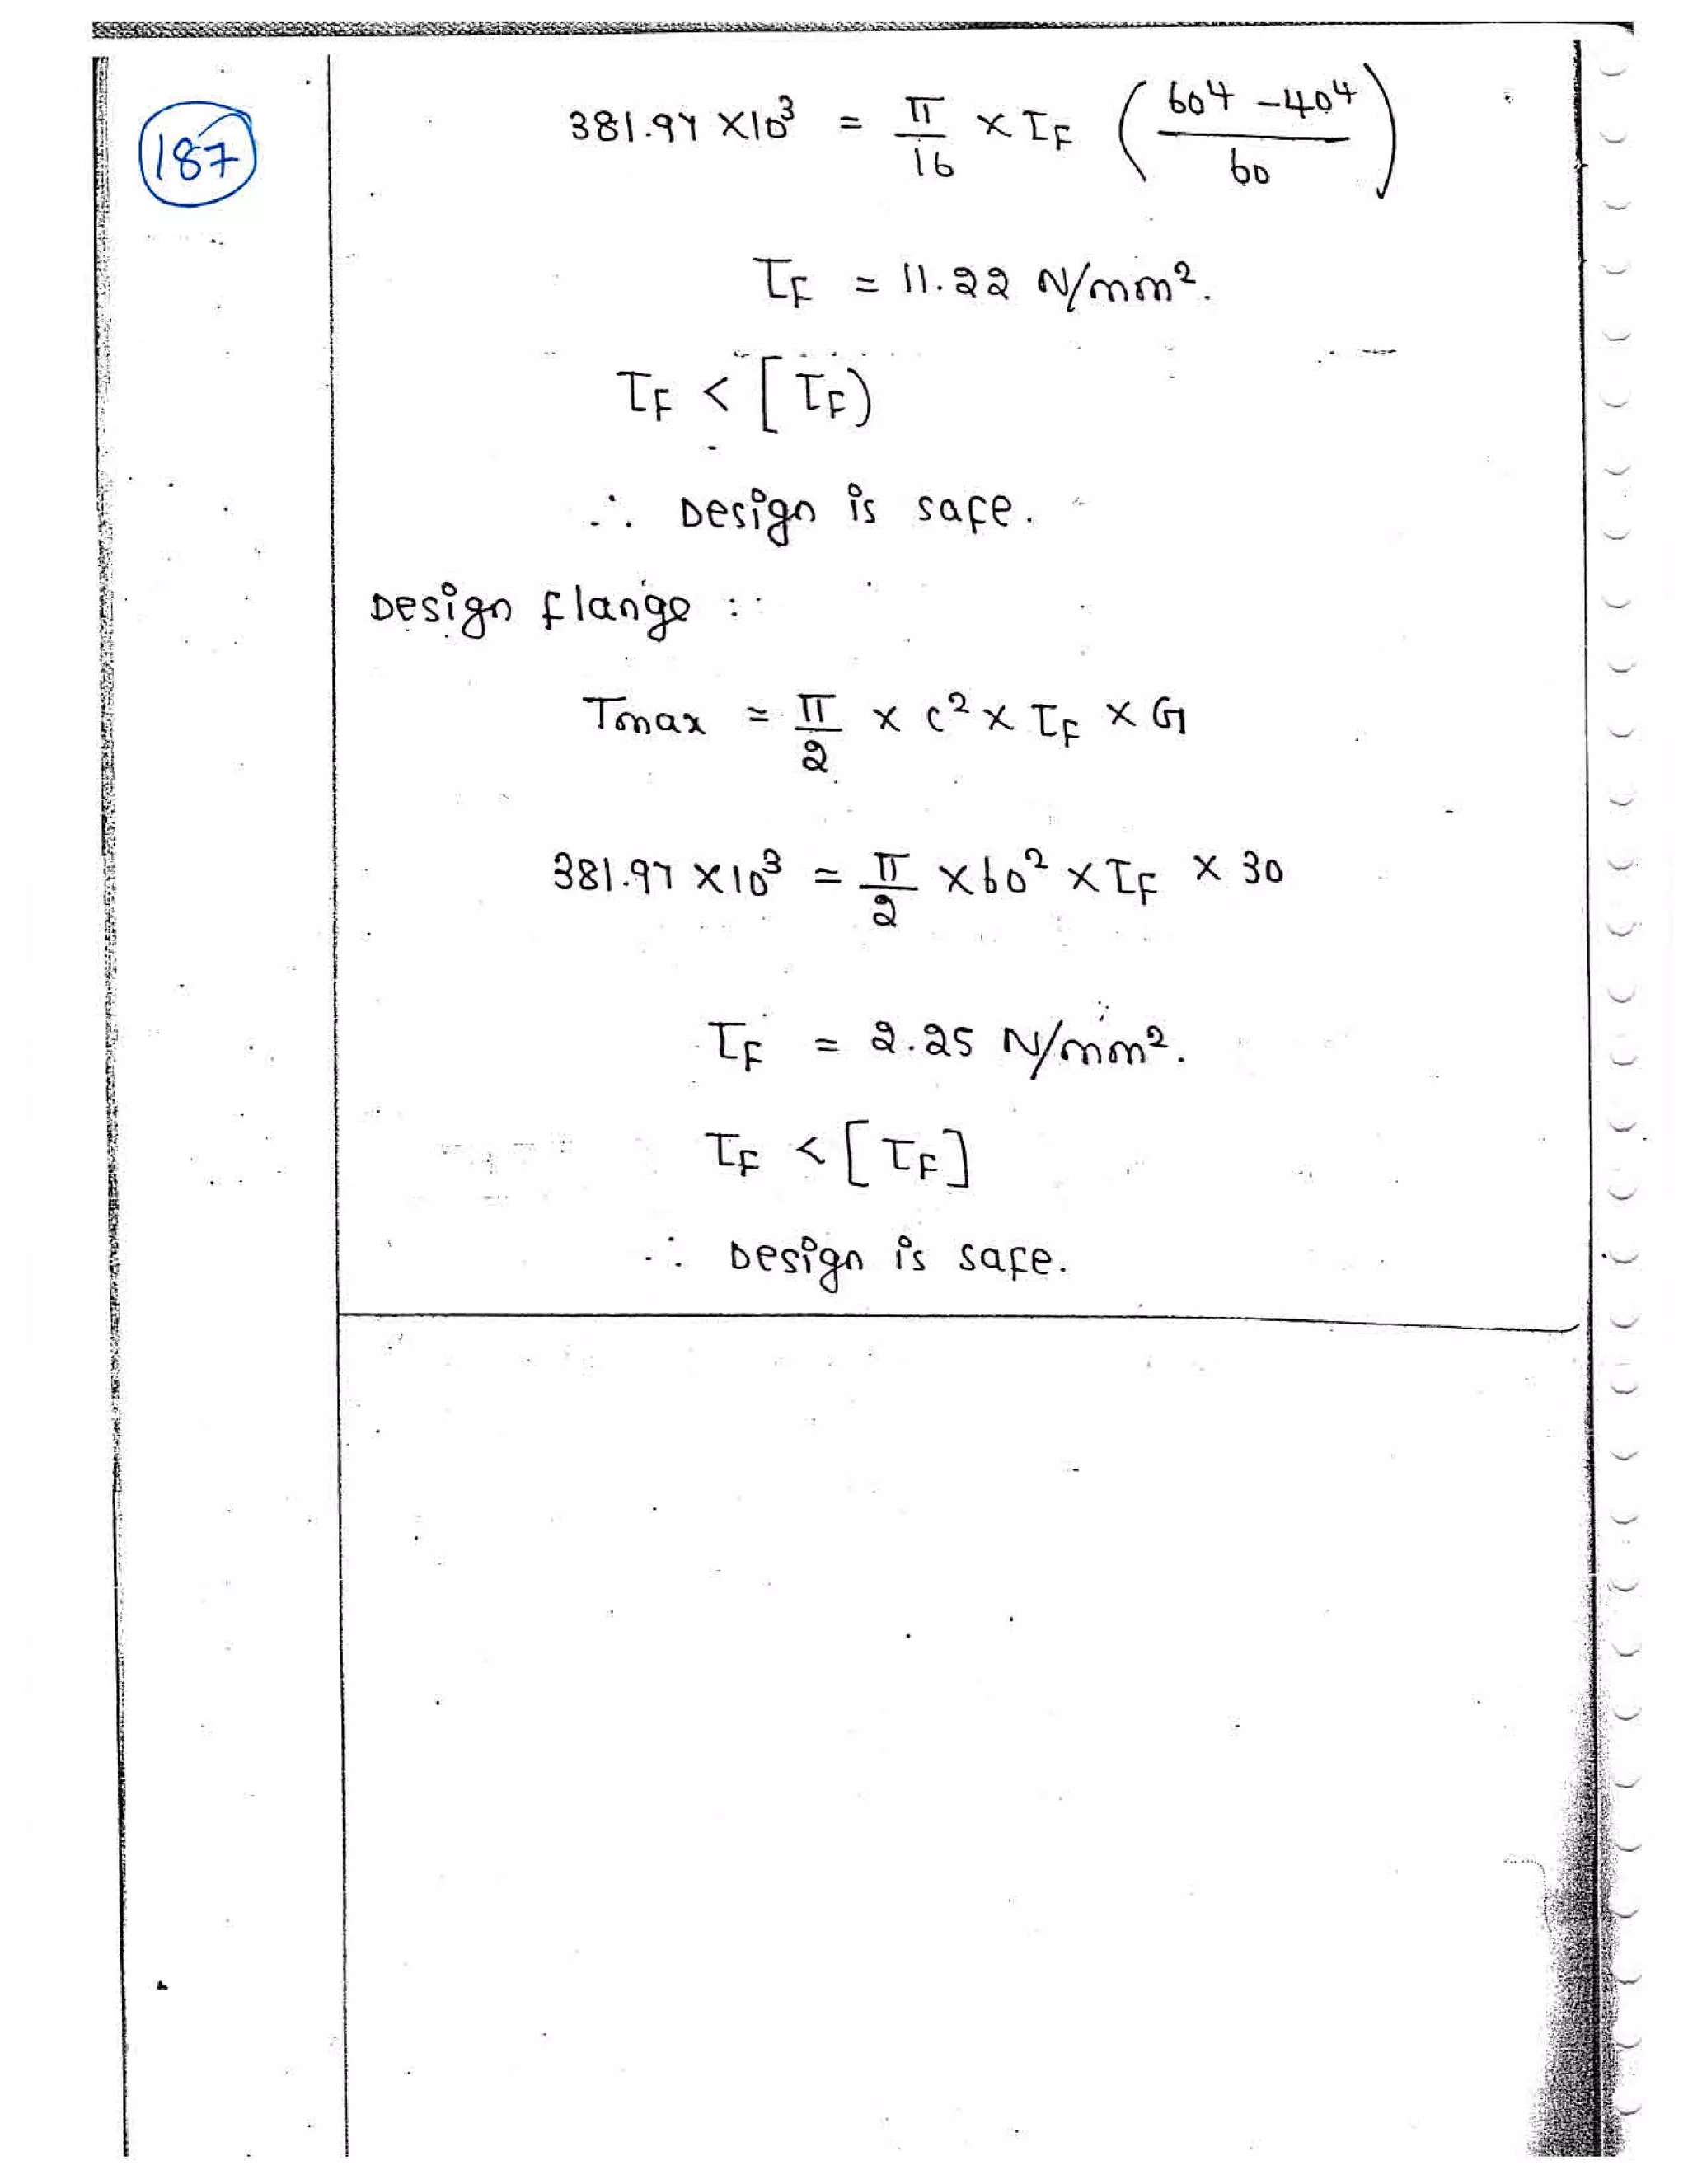 187
381.97 × 10³ = π/16 × τF (60⁴ - 40⁴ / 60)
τF = 11.22 N/mm².
τF < [τF)
∴ Design is safe.
Design flange :
Tmax = π/2 × c² × τF × G
381.97 × 10³ = π/2 × 60² × τF × 30
τF = 2.25 N/mm².
τF < [τF]
∴ Design is safe.